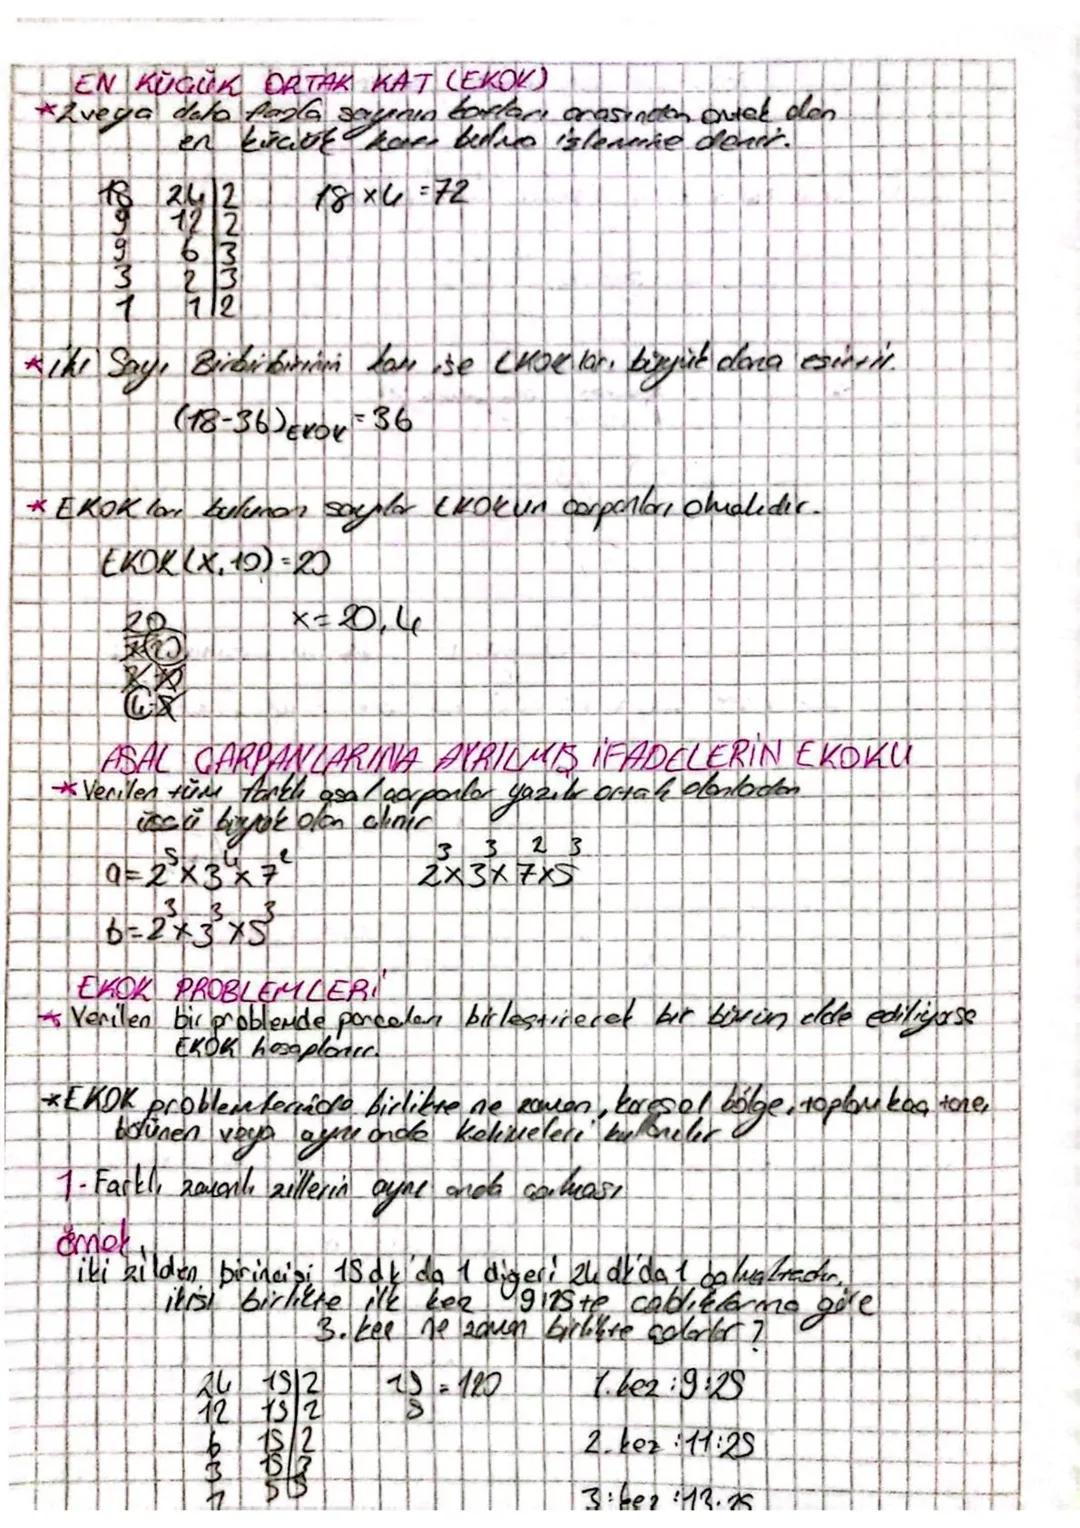 EN KÜÇÜK ORTAK KAT (EKOK)
* 2 veya daha fazla sayının katları arasından ortak olan
en küçük katı bulma işlemine denir.
18 24 | 2 18 x 4 = 72
9 12 | 2
9 6 | 3
3 2 | 3
1 1 | 2
* iki Sayı Birbirbirinin katı ise EKOK ları büyük olana eşittir.
(18-36)EKOK = 36
* EKOK ları bulunan sayılar EKOKun çarpanları olmalıdır.
EKOK(X,10) = 20
20 x = 20, 4
1 20
2 10
4 5
ASAL ÇARPANLARINA AYRILMIŞ İFADELERİN EKOKU
* Verilen tüm farklı asal çarpanlar yazılır ortak olanlardan
üssü büyük olan alınır
a = 2⁵ x 3⁴ x 7² 2³ x 3³ x 7² x 5³
b = 2³ x 3³ x 5³
EKOK PROBLEMLERİ
* Verilen bir problemde parçaları birleştirerek bir bütün elde ediliyorsa
EKOK hesaplanır.
* EKOK problemlerinde birlikte ne zaman, karesel bölge, toplam kaç tane,
bölünen veya aynı anda kelimeleri kullanılır
1- Farklı zamanlı zillerin aynı anda çalması
Örnek,
iki zilden birincisi 15 dk'da 1 diğeri 24 dk'da 1 çalmaktadır.
ikisi birlikte ilk kez 9:25 te çaldıklarına göre
3. kez ne zaman birlikte çalarlar?
24 15 | 2 = 120 1. kez : 9:25
12 15 | 2
6 15 | 2 2. kez : 11:25
3 15 | 3
1 5 | 5 3. kez : 13.25